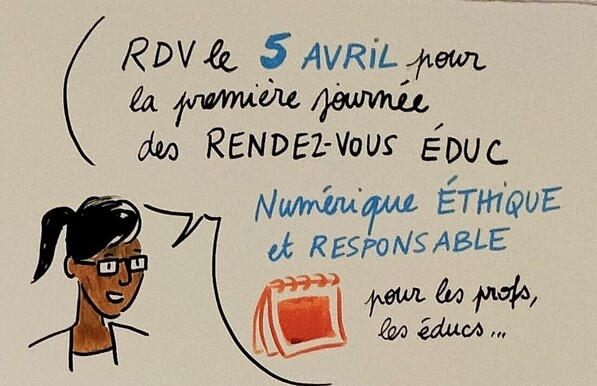 RDV le 5 AVRIL pour
la première journée
des RENDEZ-VOUS ÉDUC
Numérique ÉTHIQUE
et RESPONSABLE
pour les profs,
les éducs...